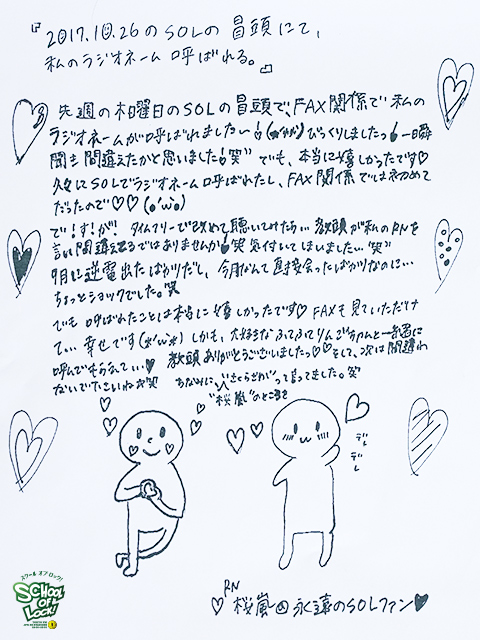 『2017.10.26のSOLの冒頭にて、
私のラジオネーム呼ばれる。』
先週の木曜日のSOLの冒頭で、FAX関係で私の
ラジオネームが呼ばれましたー! びっくりしましたっ!一瞬
聞き間違えたかと思いました!笑" でも、本当に嬉しかったです♡
久々にSOLでラジオネーム呼ばれたし、FAX関係では初めて
だったので♡♡(o'ω'o)
で!す!が! タイムフリーで改めて聴いてみたら… 教頭が私のRNを
言い間違えてるではありませんか!笑 気付いてしまいました…笑"
9月に逆電出たばかりだし、今月なんて直接会ったばかりなのに…
ちょっとショックでした。笑
でも呼ばれたことは本当に嬉しかったです♡ FAXも見ていただけ
て… 幸せです(*'ω'*) しかも、大好きなふてふてりんごちゃんと一緒に
呼んでもらえてー♡ 教頭ありがとうございましたっ♡♡そして、次は間違わ
ないで下さいねっ笑 ちなみに、"さくらざか"って言ってました。笑
"桜嵐"のところを
デレ
デレ
スクール オブ ロック!
SCHOOL OF LOCK!
RN
♡桜嵐@永遠のSOLファン♥